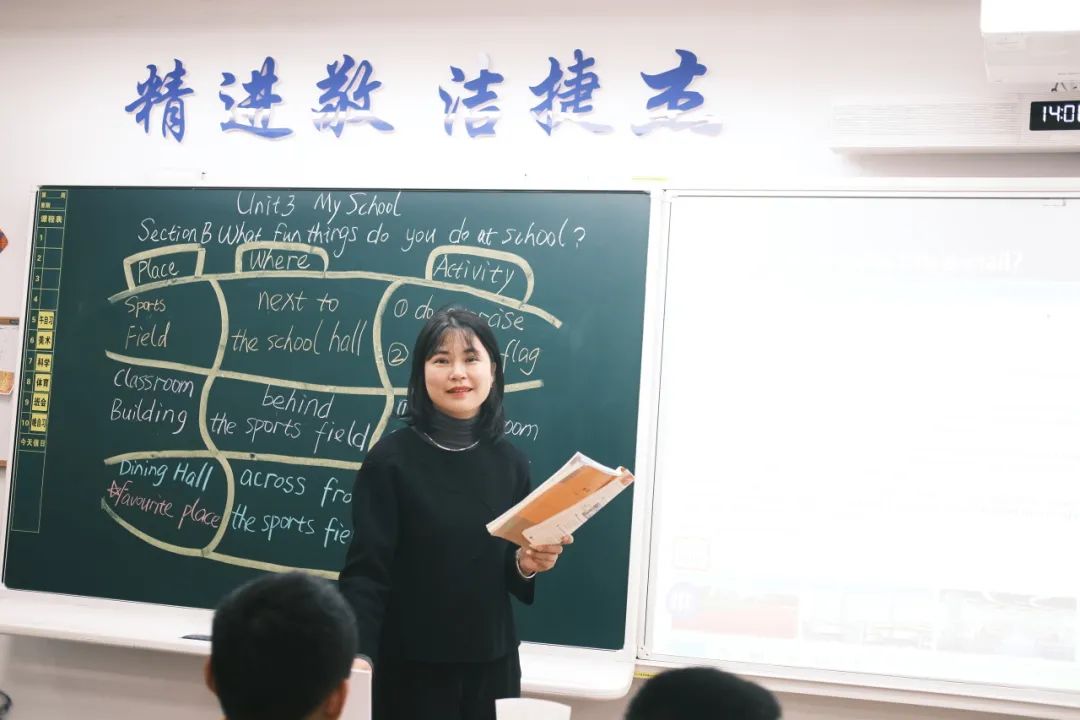 精进敬 洁捷杰
14:0
Unit 3 My School
Section B What fun things do you do at school?
Place Where Activity
Sports Field
next to the school hall
① do exercise
② flag
Classroom Building
behind the sports field
Dining Hall
☆favourite place
across fro
the sports fie
课程表
1
2
3
4
5 午自习
6 美术
7 科学
8 体育
9 班会
10 晚自习
今天值日